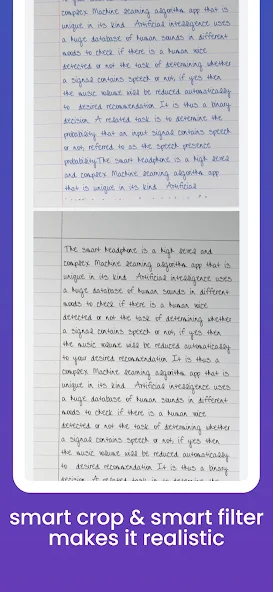 complex Machine learning algorithm app that is
unique in its kind Artificial intelligence uses
a huge database of human sounds in different
moods to check if there is a human voice
detected or not the task of determining whether
a signal contains speech or not, if yes then
the music volume will be reduced automatically
to desired recommendation It is thus a binary
decision A related task is to determine the
probability that an input signal contains speech
or not, referred to as the speech presence
probability.The smart headphone is a high level
and complex Machine learning algorithm app
that is unique in its kind Artificial
The smart headphone is a high level and
complex Machine learning algorithm app that is
unique in its kind Artificial intelligence uses
a huge database of human sounds in different
moods to check if there is a human voice
detected or not the task of determining whether
a signal contains speech or not, if yes then
the music volume will be reduced automatically
to your desired recommendation It is thus a
complex Machine learning algorithm app that is
unique in its kind Artificial intelligence uses
a huge database of human sounds in different
moods to check if there is a human voice
detected or not the task of determining whether
a signal contains speech or not, if yes then
the music volume will be reduced automatically
to desired recommendation It is thus a binary
decision A related task is to determine the
smart crop & smart filter
makes it realistic